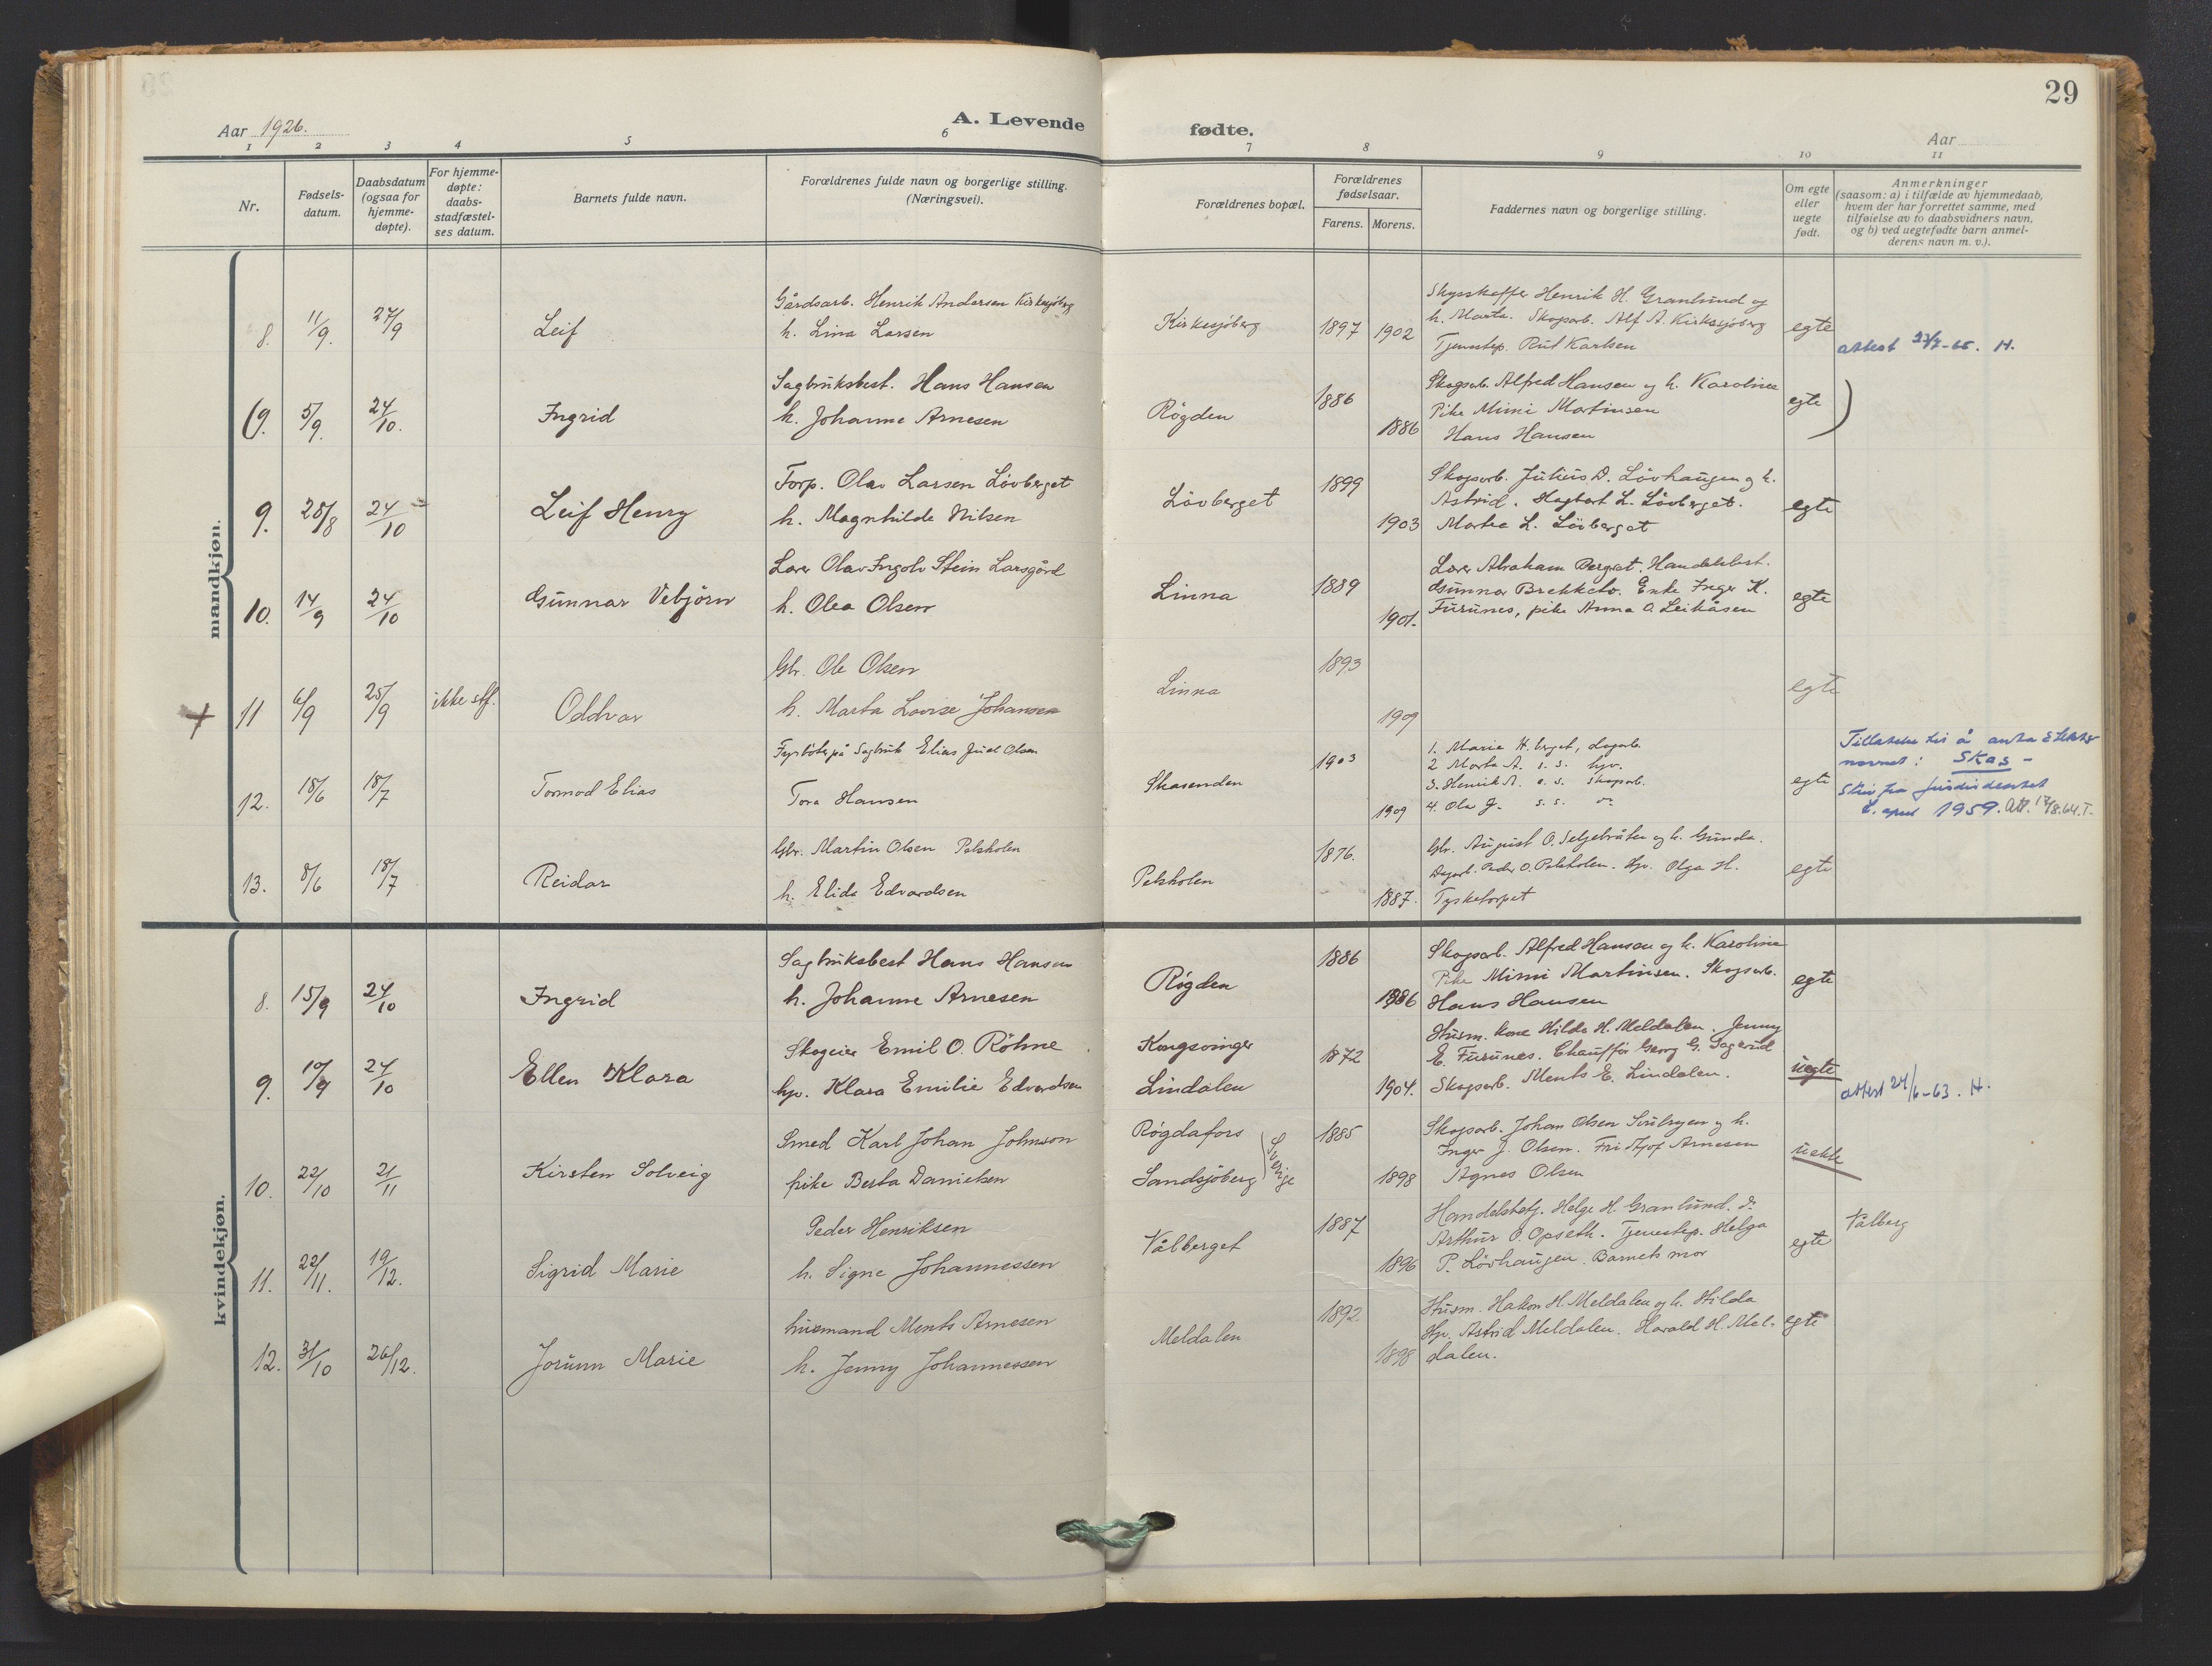 29
Aar 1926.
A. Levende fødte.
Aar
1 2 3 4 5 6 7 8 9 10 11
Nr.
Fødsels-
datum.
Daabsdatum
(ogsaa for
hjemme-
døpte).
For hjemme-
døpte:
daabs-
stadfæstel-
ses datum.
Barnets fulde navn.
Forældrenes fulde navn og borgerlige stilling.
(Næringsvei).
Forældrenes bopæl.
Forældrenes
fødselsaar.
Farens. Morens.
Faddernes navn og borgerlige stilling.
Om egte
eller
uegte
født.
Anmerkninger
(saasom: a) i tilfælde av hjemmedaab,
hvem der har forrettet samme, med
tilføielse av to daabsvidners navn,
og b) ved uegtefødte barn anmel-
derens navn m. v.).
mandkjøn.
8. 11/9. 27/9 Leif
Gårdsarb. Henrik Andersen Kirkesjöberg
h. Lina Larsen
Kirkesjöberg 1897 1902
Skysskaffer Henrik H. Granlund og
h. Marta. Skogsarb. Alf A. Kirkesjöberg
Tjenestep. Rut Karlsen
egte
attest 23/7-65. H.
(9. 5/9. 24/10. Ingrid
Sagbruksbest. Hans Hansen
h. Johanne Arnesen
Rögden 1886 1886
Skogsarb. Alfred Hansen og h. Karoline
Pike Mimi Martinsen
Hans Hansen
egte )
9. 28/8 24/10 Leif Henry
Torp. Olav Larsen Lövberget
h. Magnhilde Nilsen
Lövberget 1899 1903
Skogsarb. Julius D. Lövhaugen og h.
Astrid. Hagbart L. Lövberget.
Martea L. Lövberget
egte
10. 14/9 24/10 Gunnar Vebjörn
Lærer Olav Ingolv Stein Larsgård
h. Olea Olsen
Linna 1889 1901.
Lærer Abraham Bergset. Handelsbest.
Gunnar Brekketo. Enke Inger K.
Furunes, pike Anna O. Leikåsen
egte
+ 11 6/9 25/9 ikke stf. Oddvar
Gbr. Ole Olsen
h. Marta Lovise Johansen
Linna 1893 1909
egte
12. 18/6 18/7 Tormod Elias
Fyrböter på Sagbruk Elias Juel Olsen
Tora Hansen
Skasenden 1903 1909
1. Marie H. berget, dagarb.
2 Marta A. s. s. hjv.
3. Henrik A. s. s. skogsarb.
4. Ola J. s. s. do
egte
Tillatelse til å anta slekts-
navnet: Skas -
Skriv fra Justisdepartet
6. april 1959. Att. 17/8.64.T.
13. 8/6 18/7 Reidar
Gbr. Martin Olsen Pelsholen
h. Elida Edvardsen
Pelsholen 1876. 1887.
Gbr. August O. Seljebråten og h. Gunda.
Dagarb. Peder O. Pelsholen. Hjv. Olga H.
Tysketorpet
egte
kvindekjøn.
8. 15/9 24/10 Ingrid
Sagbruksbest Hans Hansen
h. Johanne Arnesen
Rögden 1886 1886
Skogsarb. Alfred Hansen og h. Karoline
Pike Mimi Martinsen. Skogsarb.
Hans Hansen
egte
9. 10/9 24/10 Ellen Klara
Skogeier Emil O. Röhne
hjv. Klara Emilie Edvardsen
Kongsvinger
Lindalen
1872 1904.
Husm. kone Hilda H. Meldalen. Jenny
E. Furunes. Chaufför Georg G. Sagerud
Skogsarb. Ments E. Lindalen.
uegte
attest 24/6-63. H.
10. 22/10 21/11 Kirsten Solveig
Smed Karl Johan Johnson
pike Berta Danielsen
Rögdafors
Sandsjöberg
Sverige
1885 1898
Skogsarb. Johan Olsen
Inger J. Olsen. Fritjof Arnesen
Agnes Olsen
uekte
11. 22/11. 19/12. Sigrid Marie
Peder Henriksen
h. Signe Johannessen
Vålberget 1887 1896
Handelsbetj. Helge H. Granlund. do
Arthur O. Opseth. Tjenestep. Helga
P. Lövhaugen. Barnets mor
egte
Vålberg
12. 31/10 26/12. Jorunn Marie
husmand Ments Arnesen
h. Jenny Johannessen
Meldalen 1892. 1898
Husm. Hakon H. Meldalen og h. Hilda
Hjv. Astrid Meldalen. Harald H. Mel-
dalen.
egte